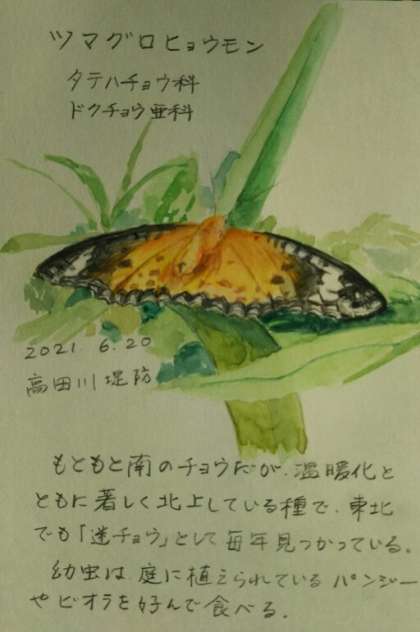 ツマグロヒョウモン
タテハチョウ科
ドクチョウ亜科
2021 6.20
高田川堤防
もともと南のチョウだが、温暖化と
ともに著しく北上している種で、東北
でも「迷チョウ」として毎年見つかっている。
幼虫は庭に植えられているパンジー
やビオラを好んで食べる。